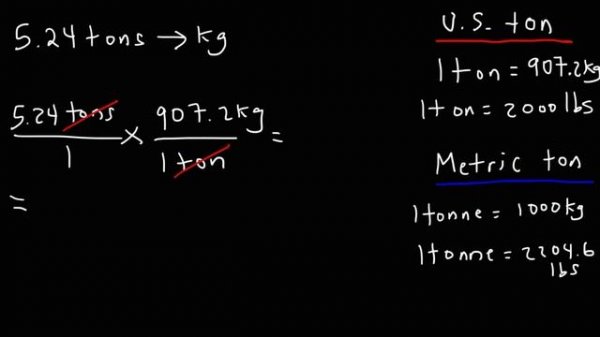 5.24 tons → kg
5.24 tons / 1 × 907.2 kg / 1 ton =
=
U.S. ton
1 ton = 907.2 kg
1 ton = 2000 lbs
Metric ton
1 tonne = 1000 kg
1 tonne = 2204.6
lbs